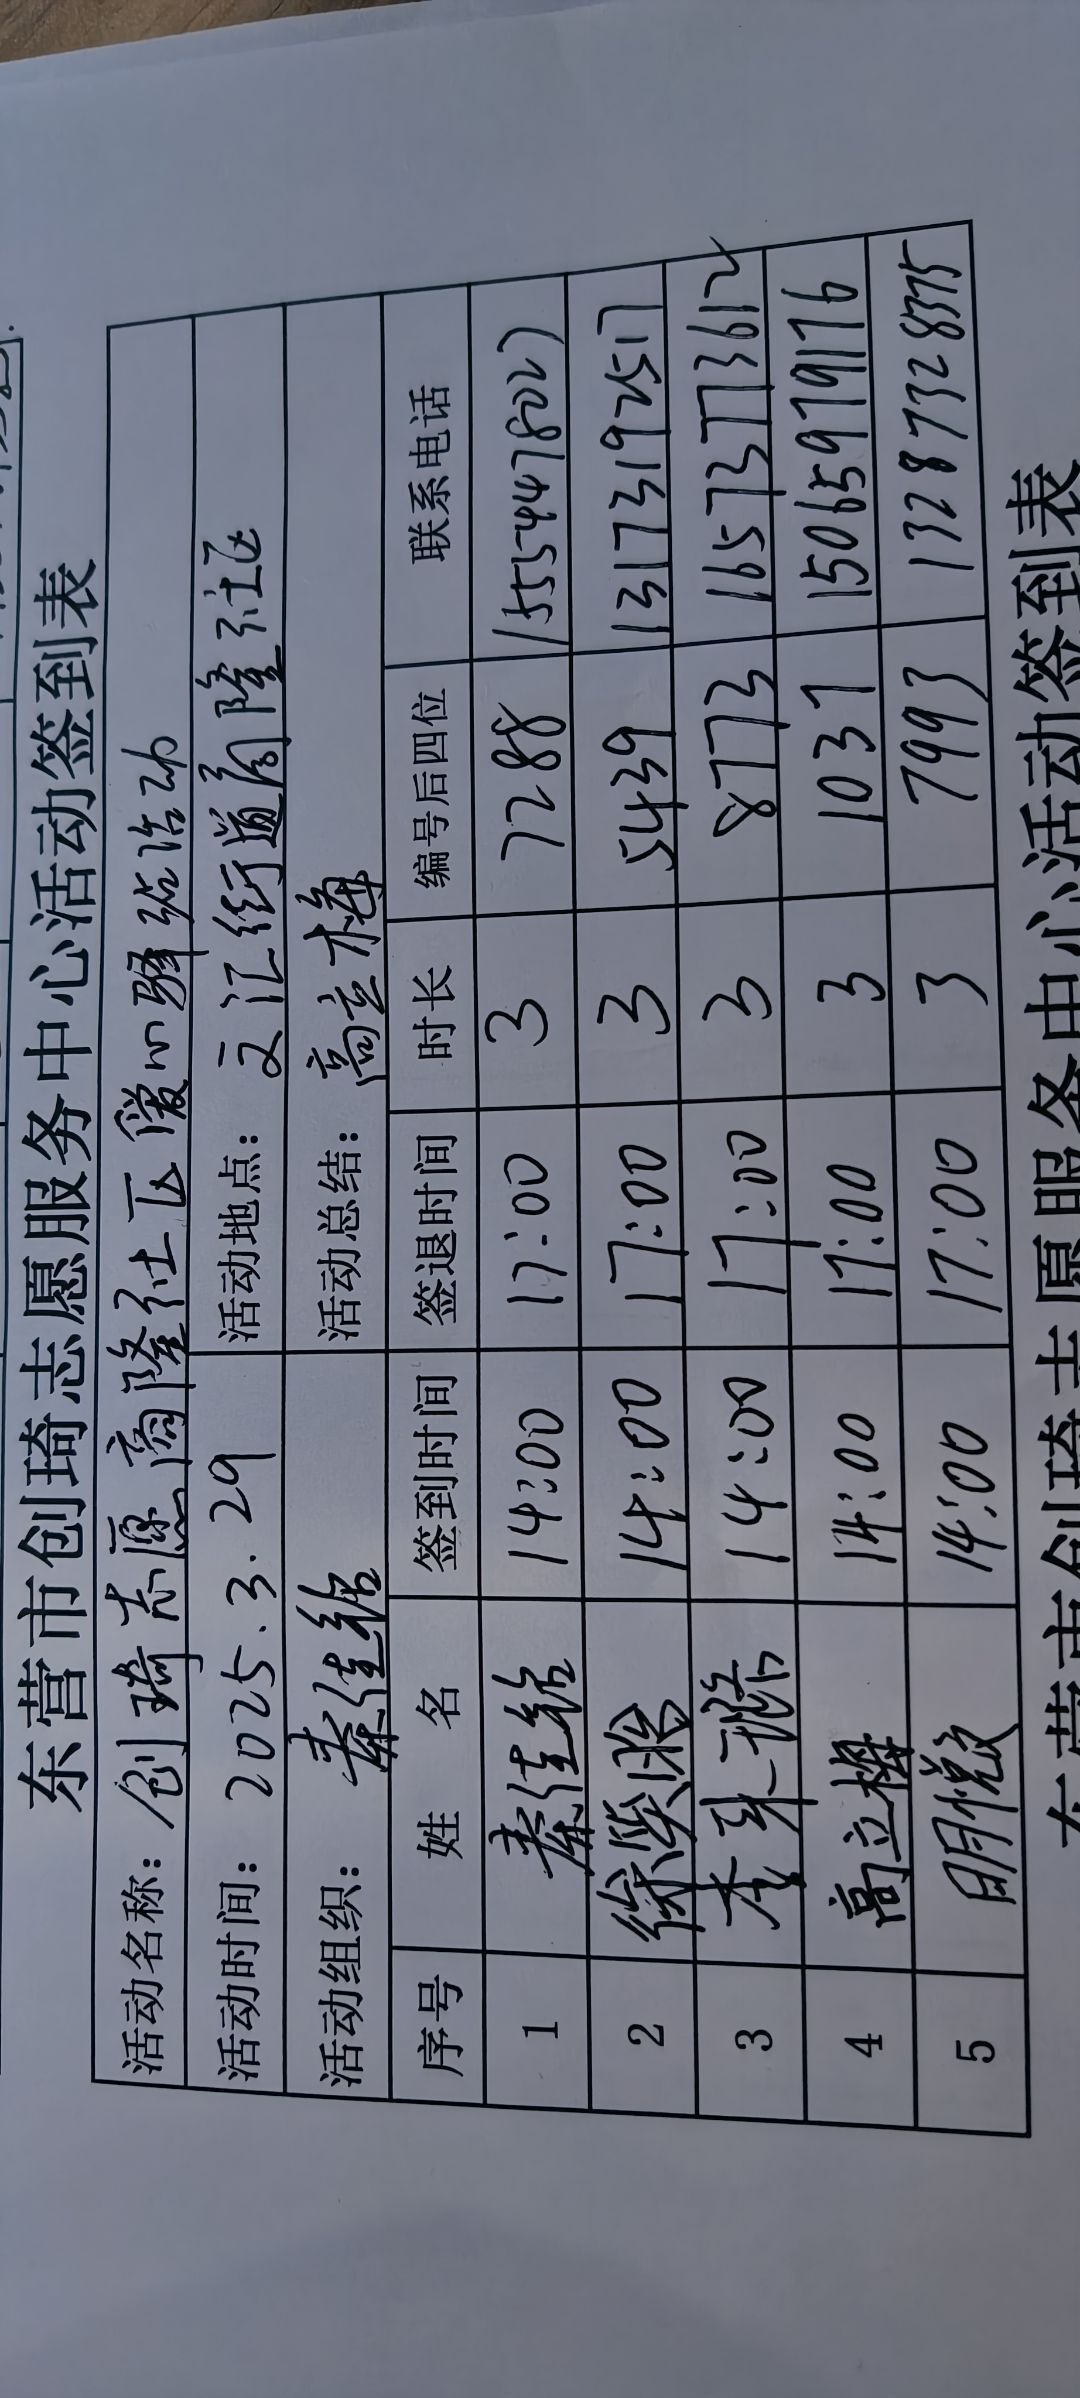 东营市创琦志愿服务中心活动签到表
活动名称：创琦志愿商隆社区爱心驿站活动
活动时间：2025.3.29 活动地点：文汇街道商隆社区
活动组织：秦佳铭 活动总结：高立梅
序号 姓名 签到时间 签退时间 时长 编号后四位 联系电话
1 秦佳铭 14:00 17:00 3 7288 15554478027
2 徐 14:00 17:00 3 5439 13173192517
3 李 14:00 17:00 3 8773 16573773612
4 高立梅 14:00 17:00 3 1037 15065979176
5 明悦 14:00 17:00 3 7993 13287328375
东营市创琦志愿服务中心活动签到表